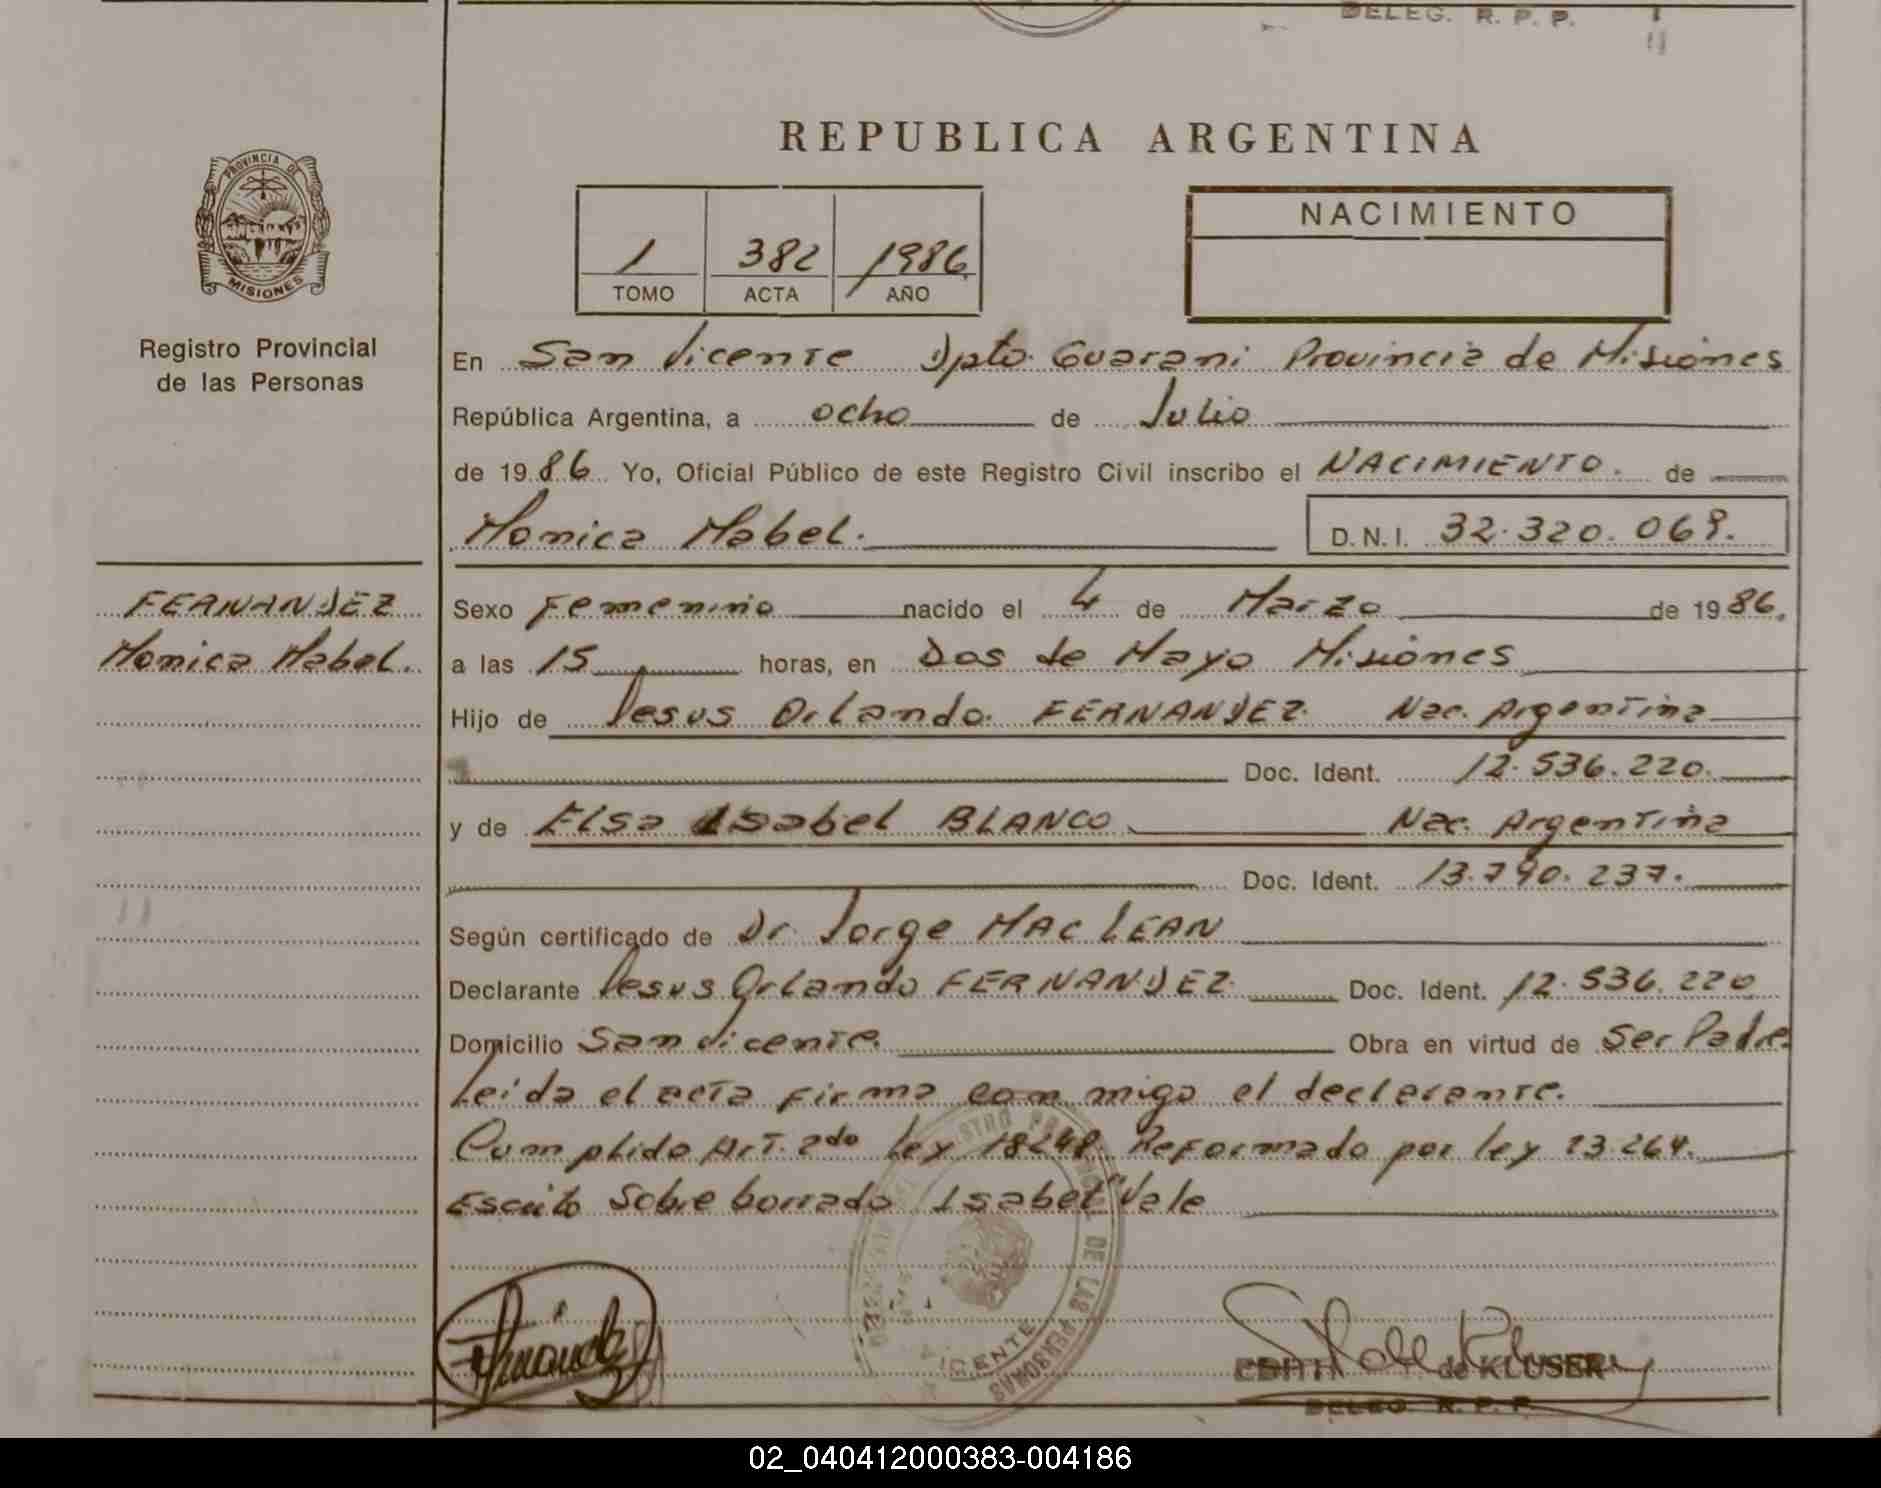 DELEG. R. P. P.
REPUBLICA ARGENTINA
PROVINCIA DE
MISIONES
Registro Provincial
de las Personas
1 382 1986
TOMO ACTA AÑO
NACIMIENTO
En San Vicente Dpto. Guarani Provincia de Misiones
República Argentina, a ocho de Julio
de 1986 Yo, Oficial Público de este Registro Civil inscribo el NACIMIENTO. de
Monica Mabel. D.N.I. 32.320.069.
FERNANDEZ
Monica Mabel.
Sexo Femenino nacido el 4 de Marzo de 1986.
a las 15 horas, en Dos de Mayo Misiones
Hijo de Jesus Orlando FERNANDEZ Nac. Argentina
Doc. Ident. 12.536.220.
y de Elsa Isabel BLANCO Nac. Argentina
Doc. Ident. 13.790.237.
Según certificado de Dr Jorge MAC LEAN
Declarante Jesus Orlando FERNANDEZ Doc. Ident. 12.536.220
Domicilio San Vicente. Obra en virtud de Ser Padre.
Leida el acta firma con migo el declarante.
Cumplido Art. 2do ley 18248 Reformado por ley 23.264.
Escrito Sobre borrado "Isabel" Vale
DE LAS PERSONAS
EDITH de KLUSER
DELEG. R. P. P.
02_040412000383-004186